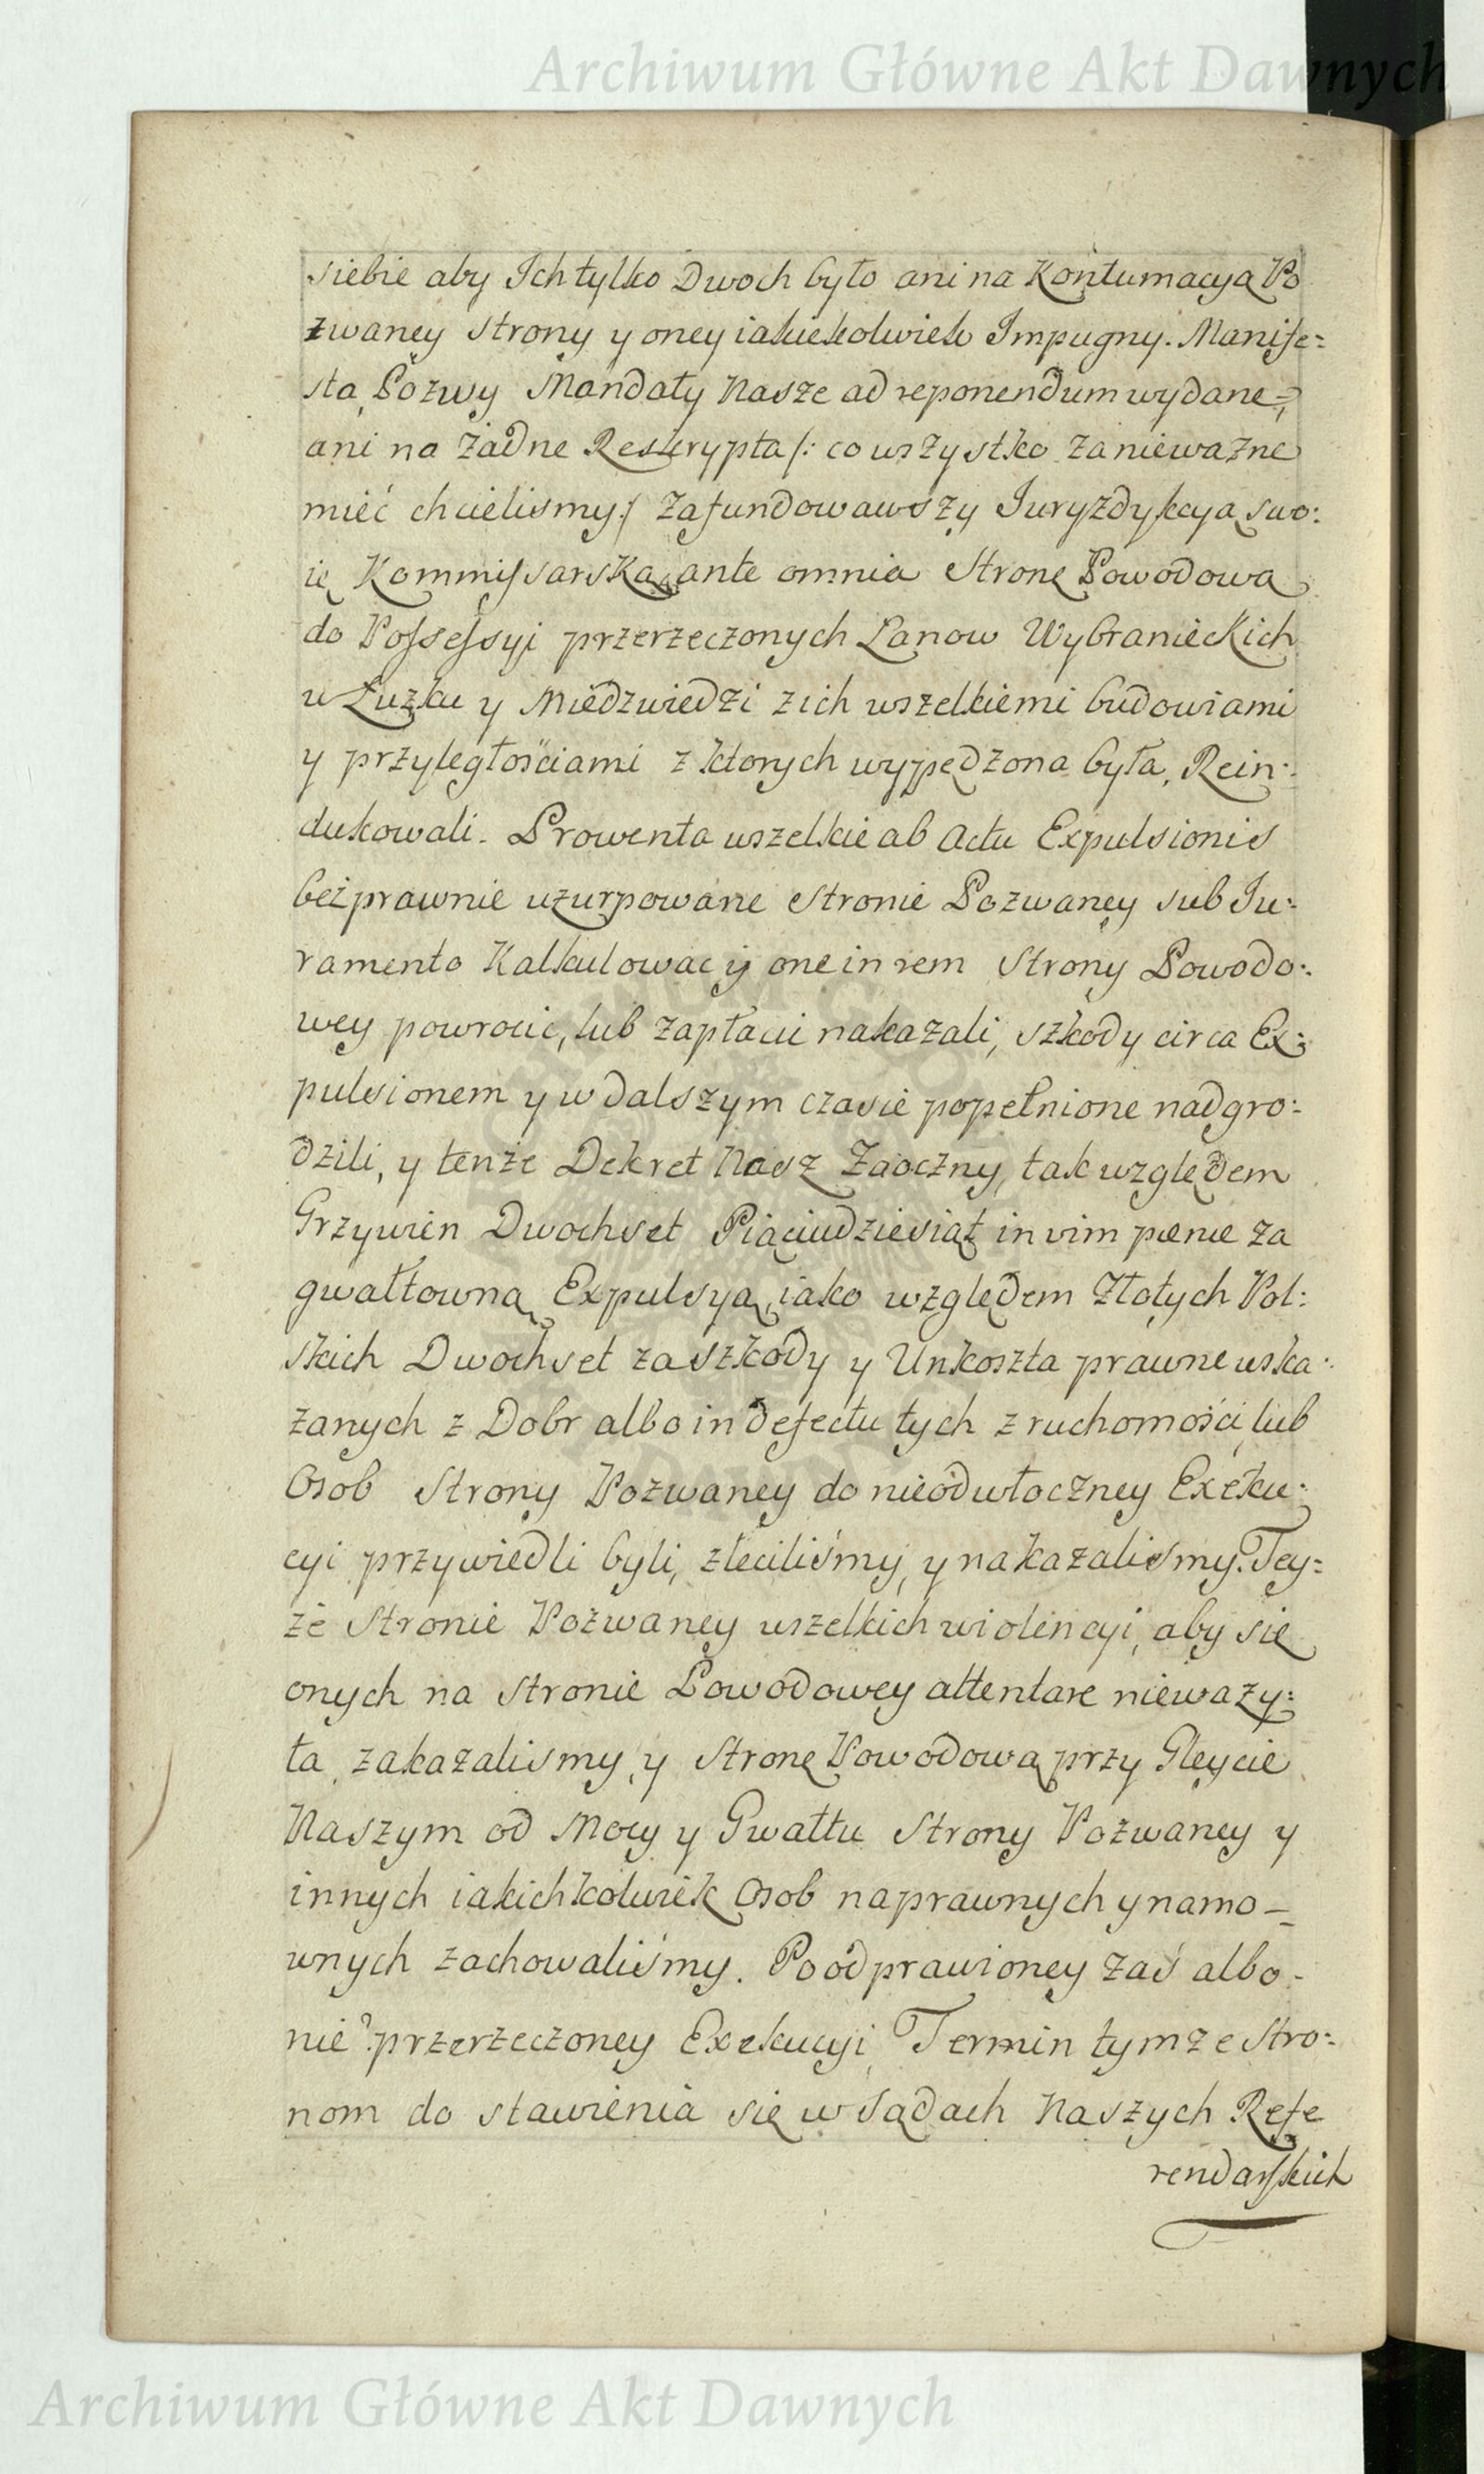 Archiwum Główne Akt Dawnych
siebie aby Ich tylko Dwoch było ani na Kontumacyą Po
zwaney Strony y oney iakiekolwiek Impugny. Manife:
sta, Pozwy Mandaty Nasze ad reponendum wydane,
ani na żadne Reskrypta /: co wszystko za nieważne
mieć chcieliśmy :/ zafundowawszy Juryzdykcyą swo:
ię Kommissarską, ante omnia Stronę Powodową
do Possessyi przerzeczonych Łanow Wybranieckich
w Łuzku y Miedzwiedzi z ich wszelkiemi budowiami
y przyległościami z ktorych wypędzona była, Rein:
dukowali. Prowenta wszelkie ab actu Expulsionis
bezprawnie uzurpowane Stronie Pozwaney sub Ju:
ramento Kalkulować y one in rem Strony Powodo:
wey powrocić, lub zapłacić nakazali, szkody circa Ex:
pulsionem y w dalszym czasie popełnione nadgro:
dzili, y tenże Dekret Nasz Zaoczny, tak względem
Grzywien Dwochset Piąciudziesiąt in vim pœnæ za
gwałtowną Expulsyą, iako względem Złotych Pol:
skich Dwochset za szkody y Unkoszta prawne wska:
zanych z Dobr albo in defectu tych z ruchomości, lub
Osob Strony Pozwaney do nieodwłoczney Exeku:
cyi przywiedli byli, zleciliśmy, y nakazaliśmy. Tey:
że Stronie Pozwaney wszelkich wiolencyi, aby się
onych na Stronie Powodowey attentare nieważy:
ła, zakazaliśmy, y Stronę Powodową przy Gleycie
Naszym od Mocy y Gwałtu Strony Pozwaney y
innych iakichkolwiek Osob naprawnych y namo=
wnych zachowaliśmy. Po odprawioney zaś albo
nie? przerzeczoney Exekucyi, Termin tymże Stro:
nom do stawienia się w Sądach Naszych Refe
rendarskich
Archiwum Główne Akt Dawnych